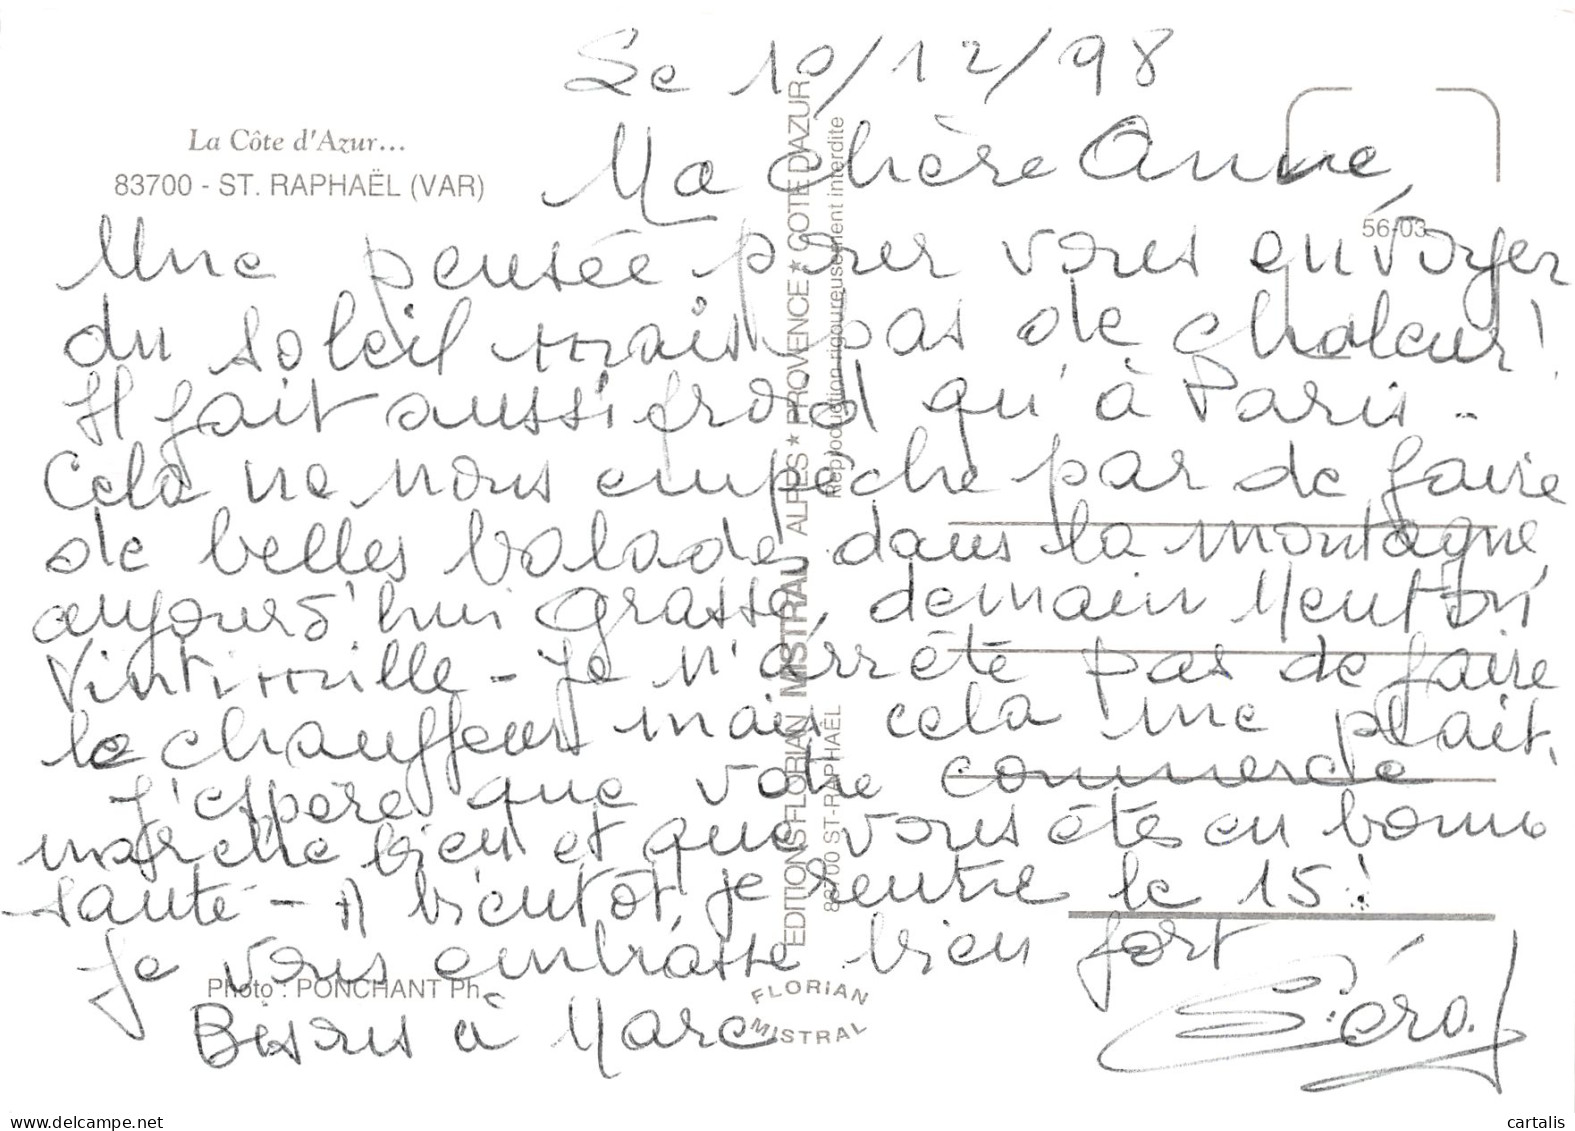 Le 10/12/98
La Côte d'Azur...
83700 - ST. RAPHAËL (VAR)
Ma chère Anne,
56-03
Une pensée pour vous envoyer
du soleil mais pas de chaleur!
Il fait aussi froid qu'à Paris -
Cela ne nous empêche pas de faire
de belles balades dans la montagne,
aujourd'hui Grasse, demain Menton
Vintimille - Je n'arrête pas de faire
le chauffeur mais cela me plait.
J'espère que votre commerce
marche bien et que vous êtes en bonne
santé - A bientôt, je rentre le 15!
Je vous embrasse bien fort
Bisous à Marc
Photo : PONCHANT Ph.
EDITIONS FLORIAN MISTRAL ALPES ★ PROVENCE ★ COTE D'AZUR
83700 ST-RAPHAËL
Reproduction rigoureusement interdite
FLORIAN
MISTRAL
www.delcampe.net
cartalis